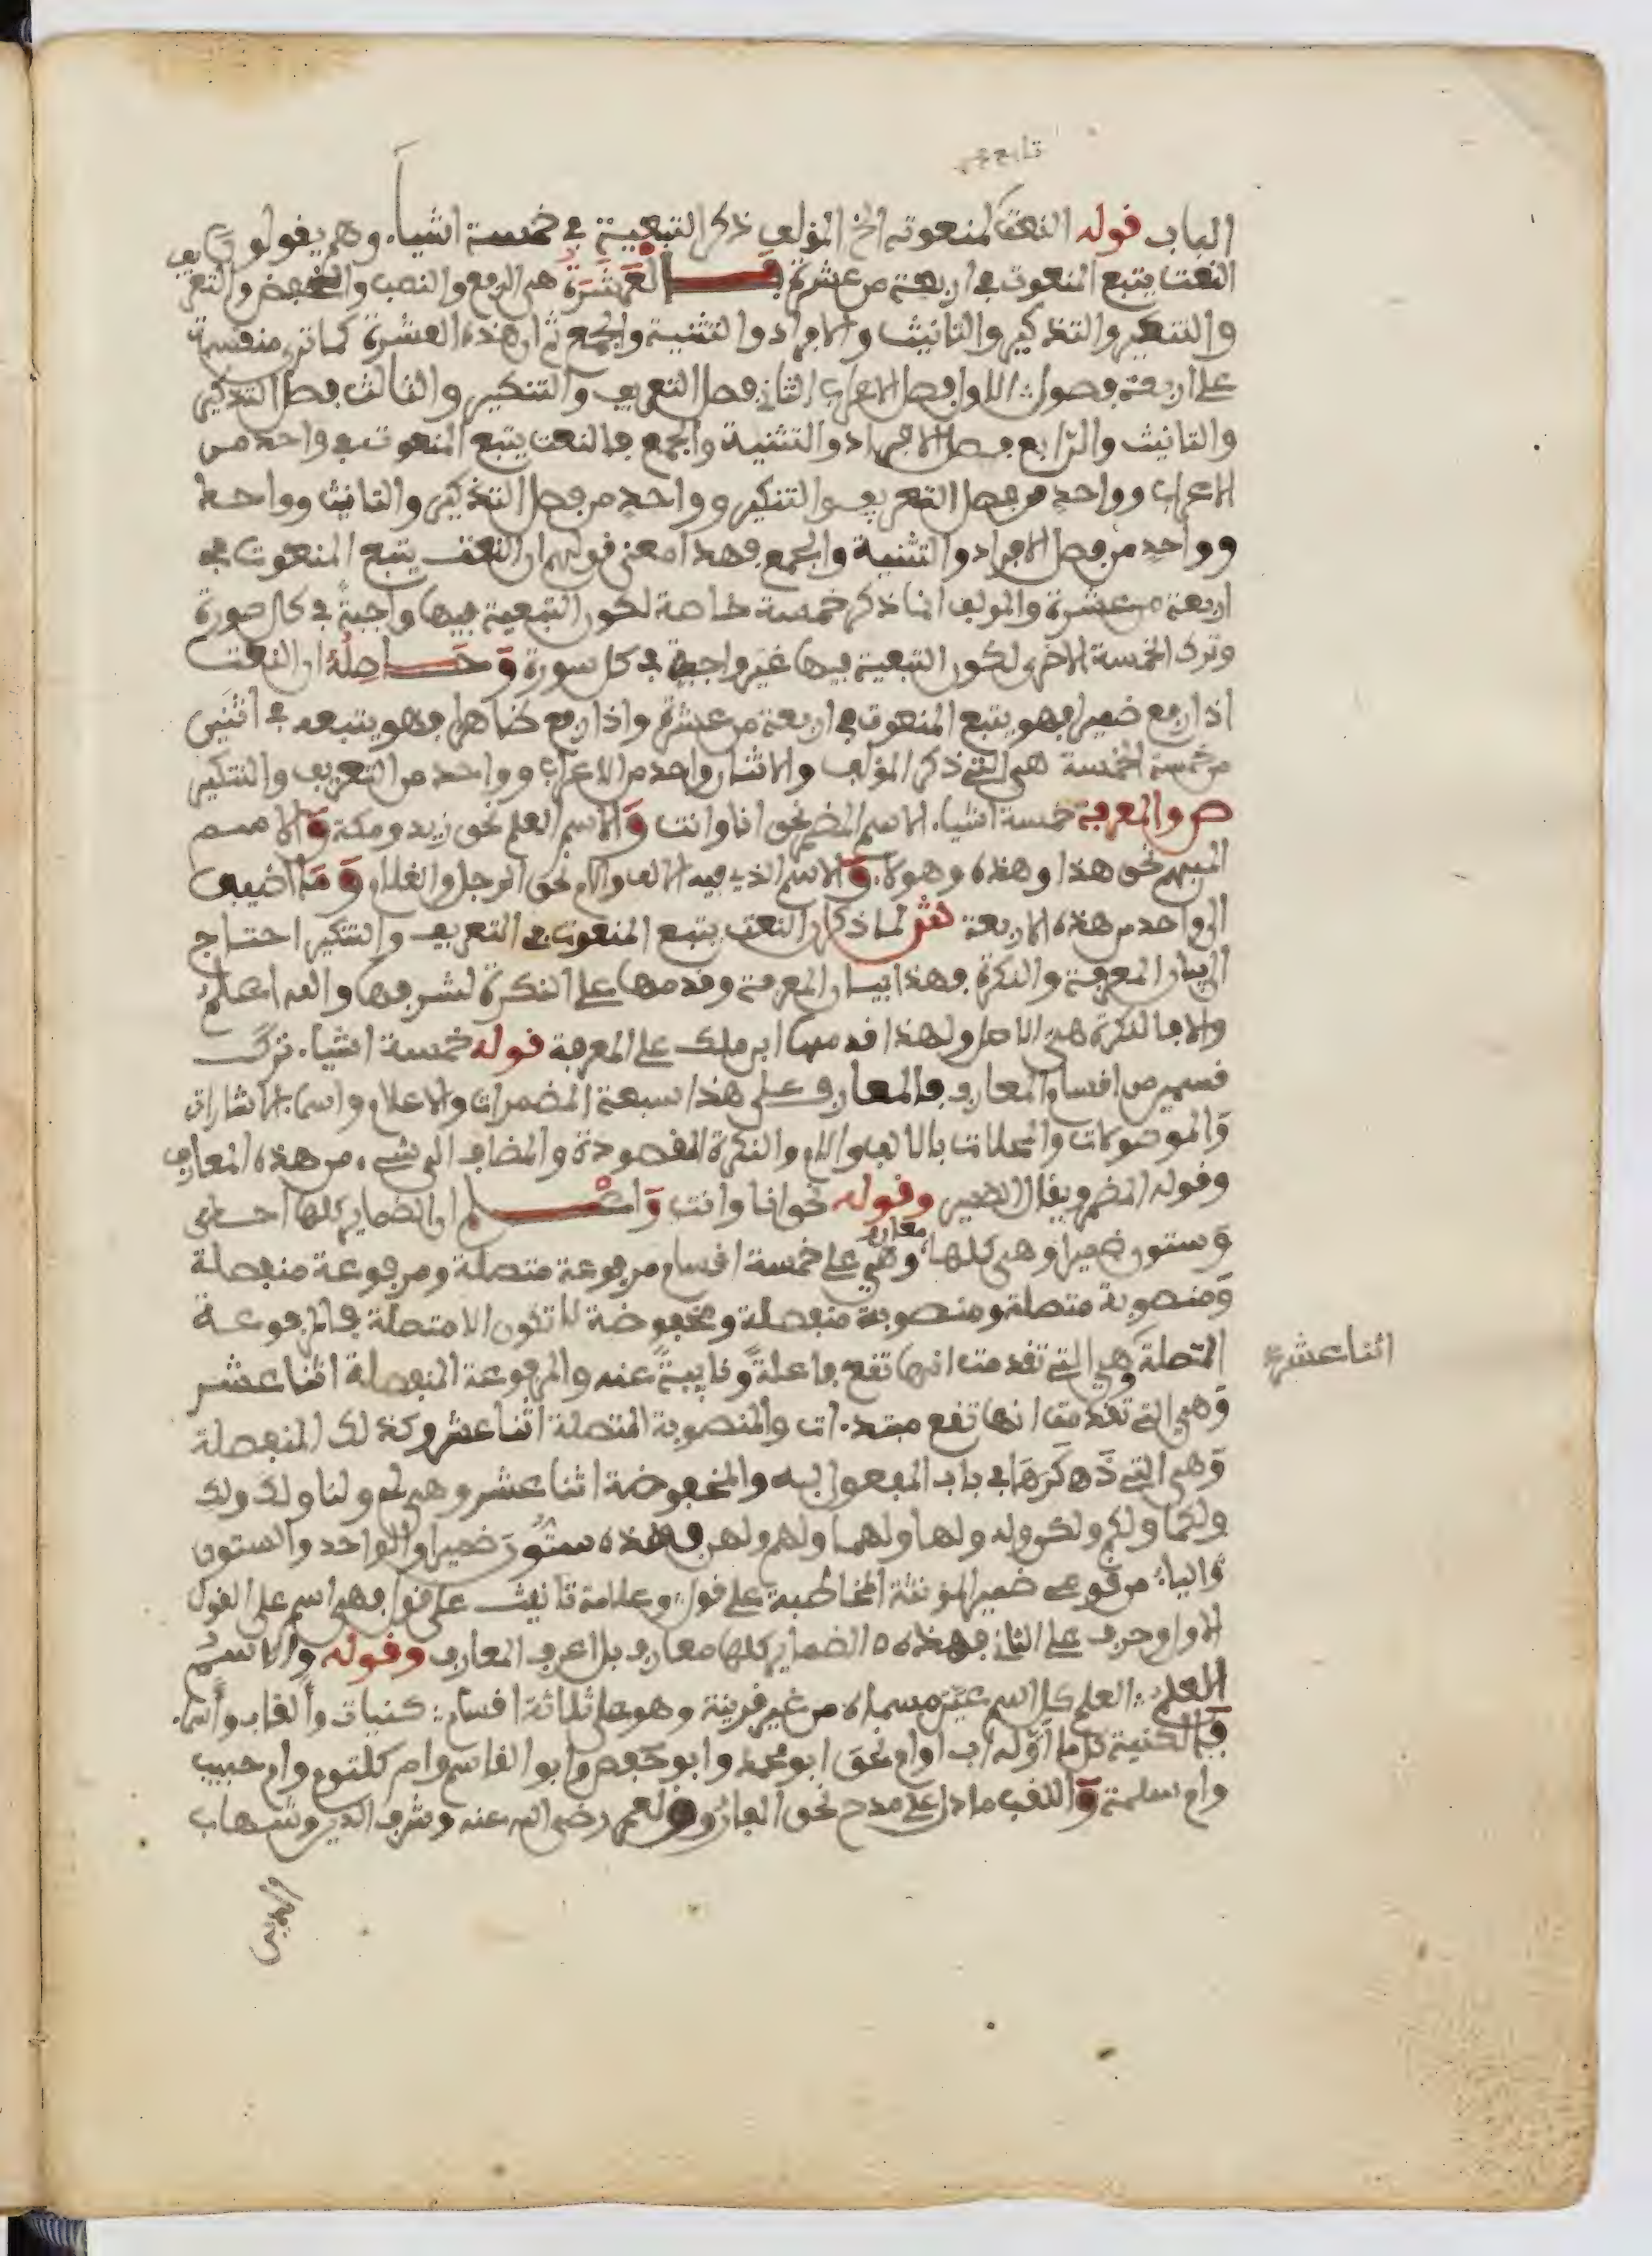 تابع
الباب قوله النعت لمنعوته الخ المؤلف ذكر التبعية في خمسة اشياء وهم يقولون
النعت يتبع المنعوت في اربعة من عشرة فالعشرة هي الرفع والنصب والخفض والتعريف
والتنكير والتذكير والتانيث والافراد والتثنية والجمع ثم ان هذه العشرة كما ترى منقسمة
على اربعة فصول الاول فصل الاعراب الثاني فصل التعريف والتنكير والثالث فصل التذكير
والتانيث والرابع فصل الافراد والتثنية والجمع فالنعت يتبع المنعوت في واحد من
الاعراب وواحد من فصل التعريف والتنكير وواحد من فصل التذكير والتانيث وواحد
وواحد من فصل الافراد والتثنية والجمع فهذا معنى قولهم ان النعت يتبع المنعوت في
اربعة من عشرة والمولف انما ذكر خمسة خاصة لكون التبعية فيها واجبة في كل صورة
وترك الخمسة الاخرى لكون التبعية فيها غير واجبة في كل سورة وحاصله ان النعت
اذا رفع ضميرا فهو يتبع المنعوت في اربعة من عشرة واذا رفع ظاهرا فهو يتبعه في اثنين
من خمسة الخمسة هي التي ذكر المؤلف والاثنان واحد من الاعراب وواحد من التعريف والتنكير
ص والمعرفة خمسة اشياء الاسم المضمر نحو انا وانت والاسم العلم نحو زيد ومكة والاسم
المبهم نحو هذا وهذه وهولاء والاسم الذي فيه الالف واللام نحو الرجل والغلام وما اضيف
الى واحد من هذه الاربعة لما ذكر ان النعت يتبع المنعوت في التعريف والتنكير احتاج
الى بيان المعرفة والنكرة فهذا بيان المعرفة وقدمها على النكرة لشرفها والله اعلم
والا فالنكرة هي الاصل ولهذا قدمها ابن ملك على المعرفة قوله خمسة اشياء ترك
قسمين من اقسام المعارف فالمعارف على هذا سبعة المضمرات والاعلام واسماء الاشارات
والموصولات والمحلات بالالف واللام والنكرة المقصودة والمضاف الى شيء من هذه المعارف
وقوله المضمر ويقال الضمير وقوله نحو انا وانت واعلم ان الضماير كلها احدى
وستون ضميرا وهي كلها معارف وهي على خمسة اقسام مرفوعة متصلة ومرفوعة منفصلة
ومنصوبة متصلة ومنصوبة منفصلة ومخفوضة لا تكون الا متصلة فالمرفوعة
المتصلة وهي التي تقدمت انها تقع فاعلة ونايبة عنه والمرفوعة المنفصلة اثنا عشر
اثنا عشر
وهي التي تقدمت انها تقع مبتدءات والمنصوبة المتصلة اثنا عشر وكذلك المنفصلة
وهي التي ذكرها في باب المفعول به والمخفوضة اثنا عشر وهي لي ولنا ولك ولك
ولكما ولكم ولكن وله ولها ولهما ولهم ولهن فهذه ستون ضميرا والواحد والستون
والياء مرفوع ضمير المؤنثة المخاطبة على قول وعلامة تانيث على قول فهي اسم على القول
الاول وحرف على الثاني فهذه الضماير كلها معارف بل اعرف المعارف وقوله والاسم
العلم العلم كل اسم عين مسماه من غير قرينة وهو على ثلاثة اقسام كنيات والقاب واسماء
فالكنية كل ما اوله اب او ام نحو ابو محمد وابو حفص وابو القاسم وام كلثوم وام حبيب
وام سلمة واللقب ما دل على مدح نحو الفاروق لعمر رضي الله عنه وشرف الدين وشهاب